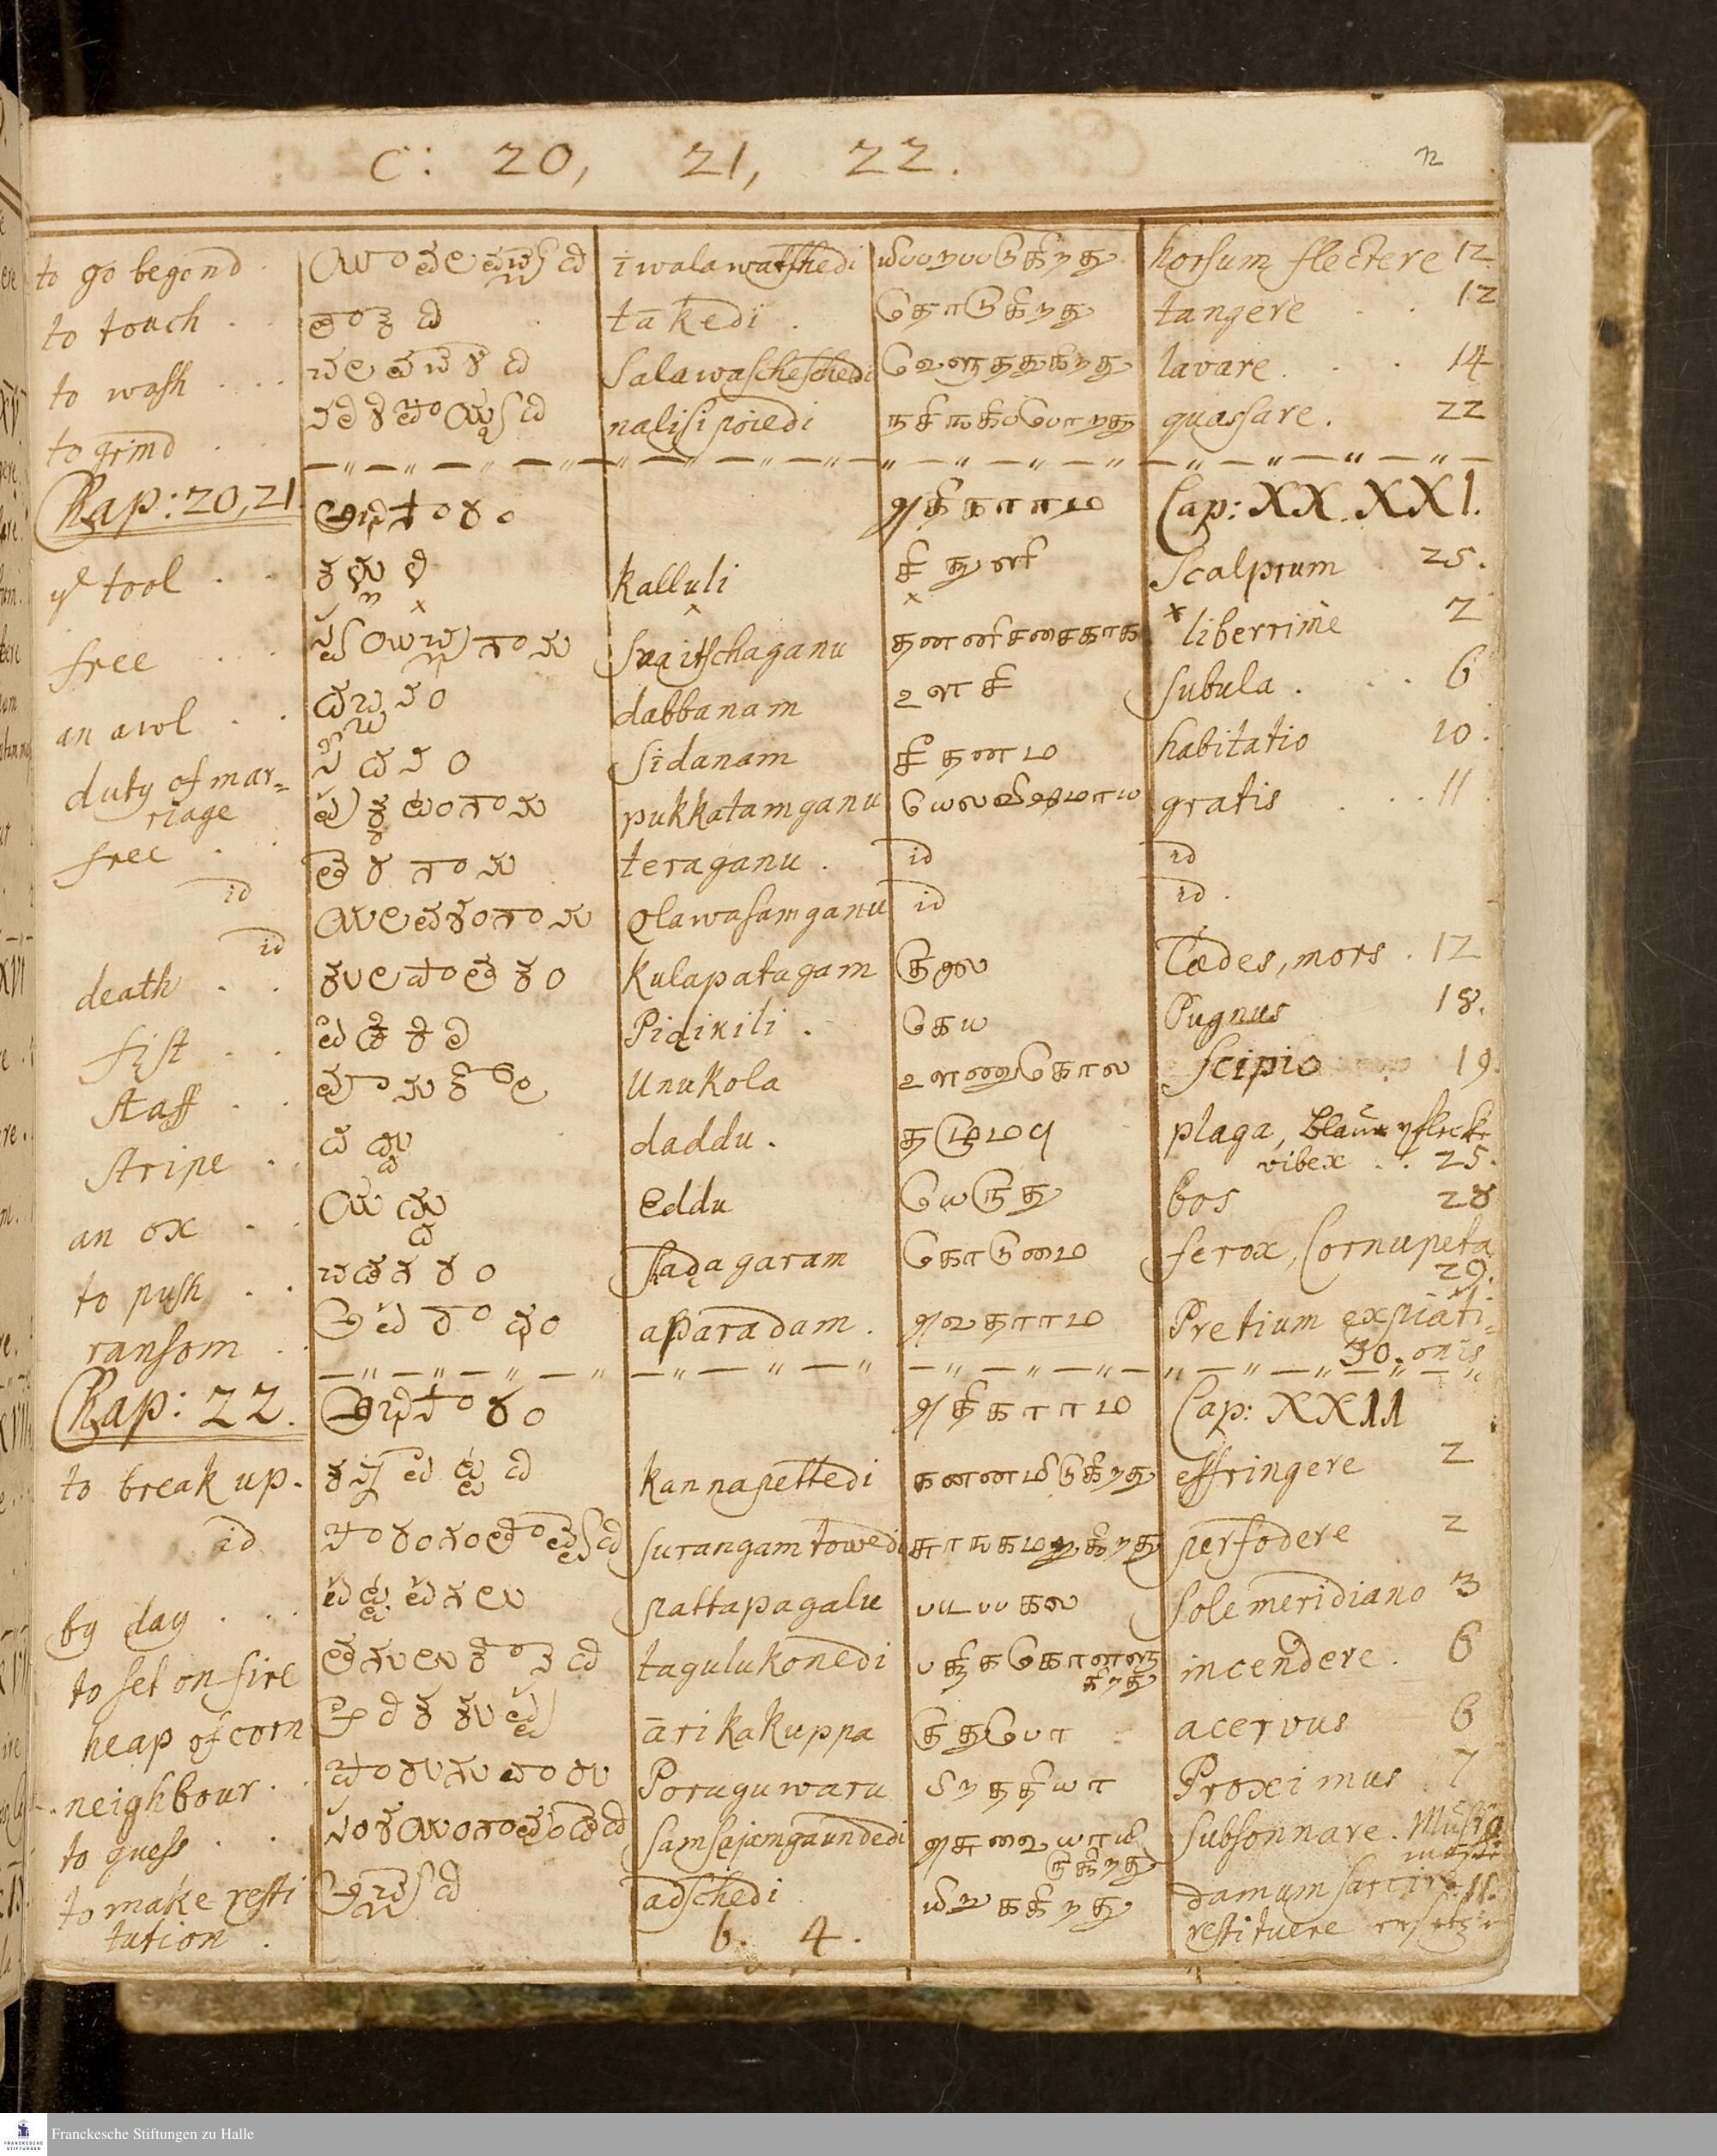 C: 20, 21, 22.
to go begond ఇవలవచ్చేది iwalawatshedi மீபபறபபடுகிறது horsum flectere 12
to touch తాకేది takedi தொடுகிறது tangere 12
to wash చలవచేశేది salawascheschedi வெளுததுகிறது lavare 14
to grind నలిశిపొయ్యేది nalisipoiedi நசிஙகிபபோறது quassare 22
Kap: 20, 21 అధికారం அதிகாரம Cap: XX. XXI.
ye tool కల్లులి kalluli சிதுளி Scalprum 25.
free స్వయిచ్చగాను swaitschaganu தணணிசசைகாக liberrime 2
an awl దబ్బనం dabbanam ஊசி subula 6
duty of mar=
riage సీదనం sidanam சீதனம habitatio 10.
free పుక్కటంగాను pukkatamganu gratis 11
id తేరగాను teraganu id id
id olawasamganu id id
death కులపాతగం kulapatagam குலை Cædes, mors 12
fist పిడికిలి Pidikili கைய Pugnus 18.
staff ఊనుకోల unukola ஊணறுகோல scipio 19.
stripe దద్దు daddu. தழுமபு plaga,
vibex 25.
an ox ఎద్దు eddu யெருது bos 28
to push చడగరం sadagaram கொடுமை ferox, Cornupeta
29.
ransom అపరాధం aparadam. அவதாரம Pretium expiati=
30. onis
Kap: 22. అధికారం அதிகாரம Cap: XXII
to break up. కన్నపెట్టేది kannapettedi கணணமிடுகிறது effringere 2
id సొరంగంతొవ్వేది surangamtowedi perfodere 2
by day పట్టపగలు pattapagalu படபபகல sole meridiano 3
to set on fire తగులుకొనేది tagulukonedi பததிககொளளு
கிறது incendere. 6
heap of corn అరికకుప్ప arikakuppa acervus 6
neighbour పొరుగువారు Poruguwaru பிறததியா Proximus 7
to guess సంశయంగావుండేది samsajamgaundedi subsonnare.
to make resti
tution అచ్చేది adschedi மீறுககிறது damum sarcire 11.
restituere
b. 4.
Franckesche Stiftungen zu Halle